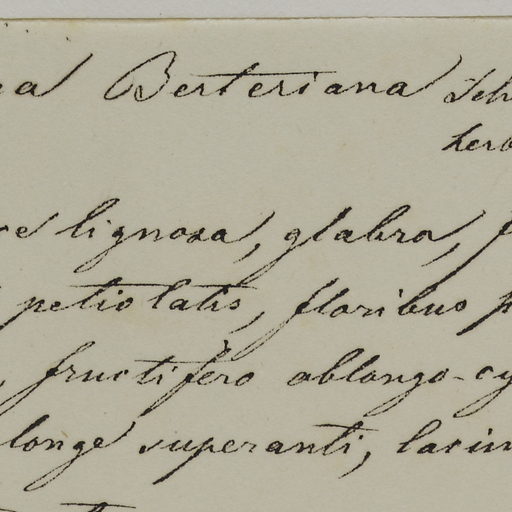 ea Berteriana Sch
herb
re lignosa, glabra, f
petiolatis, floribus p
, fructifero oblongo-cy
longe superanti, lacin